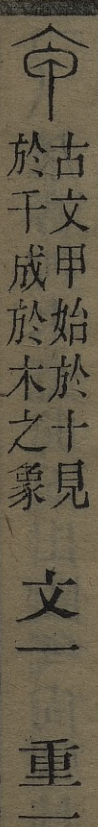 𠇚
古文甲始於十見
於千成於木之象
文一
重一